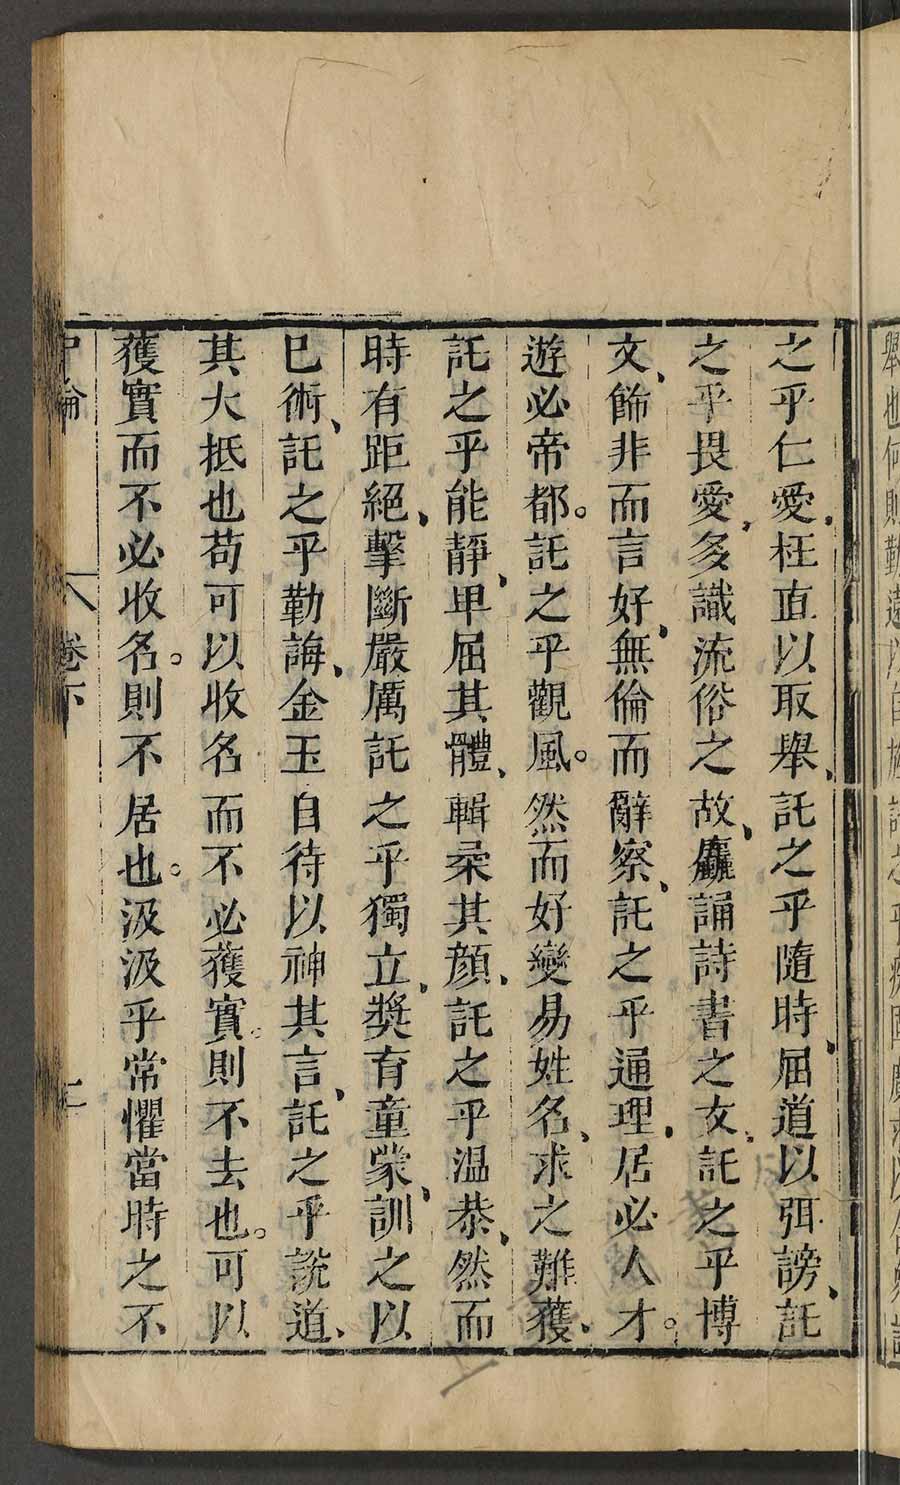 舉也何則勤遠以自旌託之乎疾固廣求以合衆託
之乎仁愛枉直以取舉託之乎隨時屈道以弭謗託
之乎畏愛多識流俗之故麤誦詩書之文託之乎博
文飾非而言好無倫而辭察託之乎通理居必人才。
遊必帝都。託之乎觀風。然而好變易姓名、求之難獲、
託之乎能靜、卑屈其體、輯柔其顏、託之乎温恭、然而
時有距絕、擊斷嚴厲託之乎獨立、奬育童蒙、訓之以
已術、託之乎勤誨、金玉自待以神其言、託之乎說道、
其大抵也苟可以收名而不必獲實。則不去也。可以
獲實而不必收名。則不居也。汲汲乎常懼當時之不
中論 卷下